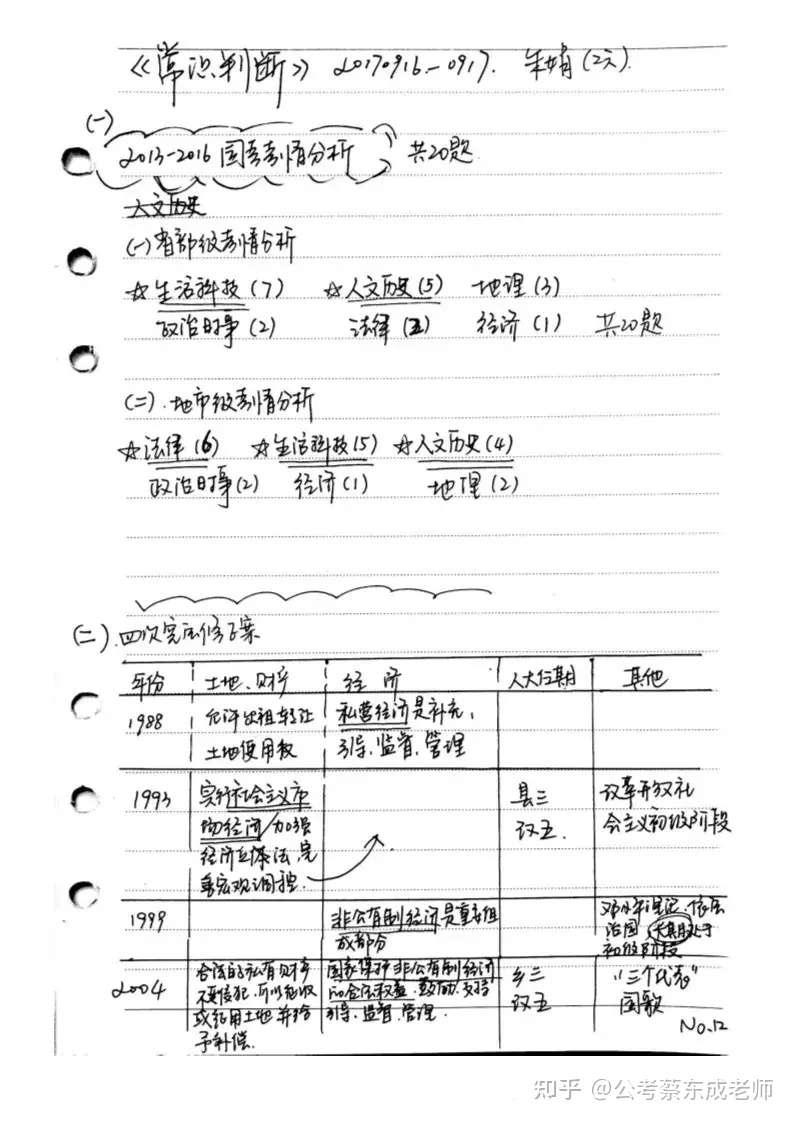 《常识判断》 20170916-0917. 朱娟(2天).
(一)
2013-2016国考考情分析 共20题
人文历史
(一)省部级考情分析
☆生活科技(7) ☆人文历史(5) 地理(3)
政治时事(2) 法律(2) 经济(1) 共20题
(二).地市级考情分析
☆法律(6) ☆生活科技(5) ☆人文历史(4)
政治时事(2) 经济(1) 地理(2)
(二).四次宪法修正案
年份 土地、财产 经济 人大任期 其他
1988 允许出租转让 私营经济是补充,
土地使用权 引导、监督、管理
1993 实行社会主义市 县三 改革开放社
场经济/加强 议五. 会主义初级阶段
经济立法,完
善宏观调控.
1999 非公有制经济是重要组 邓小平理论、依法
成部分 治国 长期处于
初级阶段
2004 合法的私有财产 国家保护非公有制经济 乡三 "三个代表"
不受侵犯,可以征收 的合法权益.鼓励、支持 议五 国歌
或征用土地并给 引导、监督、管理.
予补偿.
No.12
知乎 @公考蔡东成老师